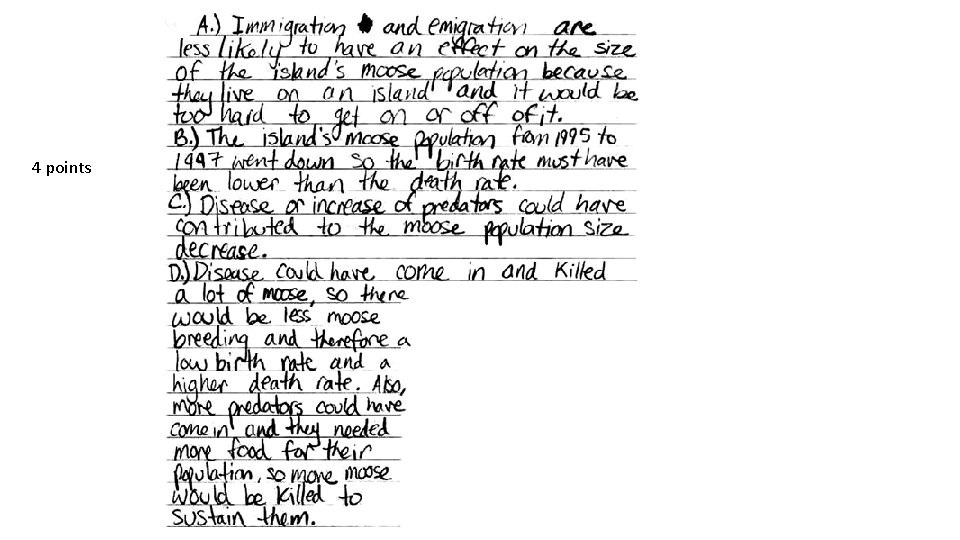 A.) Immigration and emigration are
less likely to have an effect on the size
of the island's moose population because
they live on an island and it would be
too hard to get on or off of it.
B.) The island's moose population from 1995 to
1997 went down so the birth rate must have
been lower than the death rate.
4 points
C.) Disease or increase of predators could have
contributed to the moose population size
decrease.
D.) Disease could have come in and killed
a lot of moose, so there
would be less moose
breeding and therefore a
low birth rate and a
higher death rate. Also,
more predators could have
come in and they needed
more food for their
population, so more moose
would be killed to
sustain them.